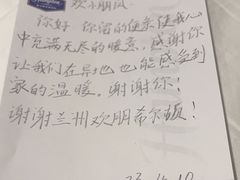 欢小朋友:
你好 你留的便条使我心
中充满无尽的暖意，感谢你
让我们在异地也能感受到
家的温暖。谢谢你！
谢谢兰州欢朋希尔顿！